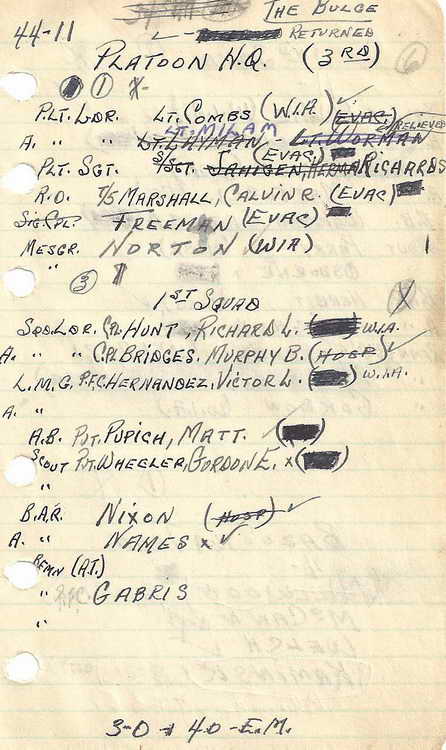 THE BULGE
44-11 RETURNED
PLATOON H.Q. (3RD) 6
1
PLT. LDR. LT. COMBS (W.I.A.) EVAC.)
A. " " LT. LAYMAN LT. MILAM LT. WORMAN RELIEVED
PLT. SGT. S/SGT. HERMAN RICHARDS (EVAC.)
R.O. T/5 MARSHALL, CALVIN R. (EVAC)
SIG. CPL. FREEMAN (EVAC)
MESGR. NORTON (WIA) 1
"
3
1ST SQUAD X
SQD. LDR. CPL. HUNT, RICHARD L. W.I.A.
A. " " CPL. BRIDGES, MURPHY B. (HOSP)
L.M.G. P.F.C. HERNANDEZ, VICTOR L. W.I.A.
A. "
A.B. PVT. PUPICH, MATT.
SCOUT PVT. WHEELER, GORDON E. X
"
B.A.R. NIXON (HOSP)
A. " NAMES X
REMN (A.T.)
" P.F.C. GABRIS
"
3-0 + 40-E.M.